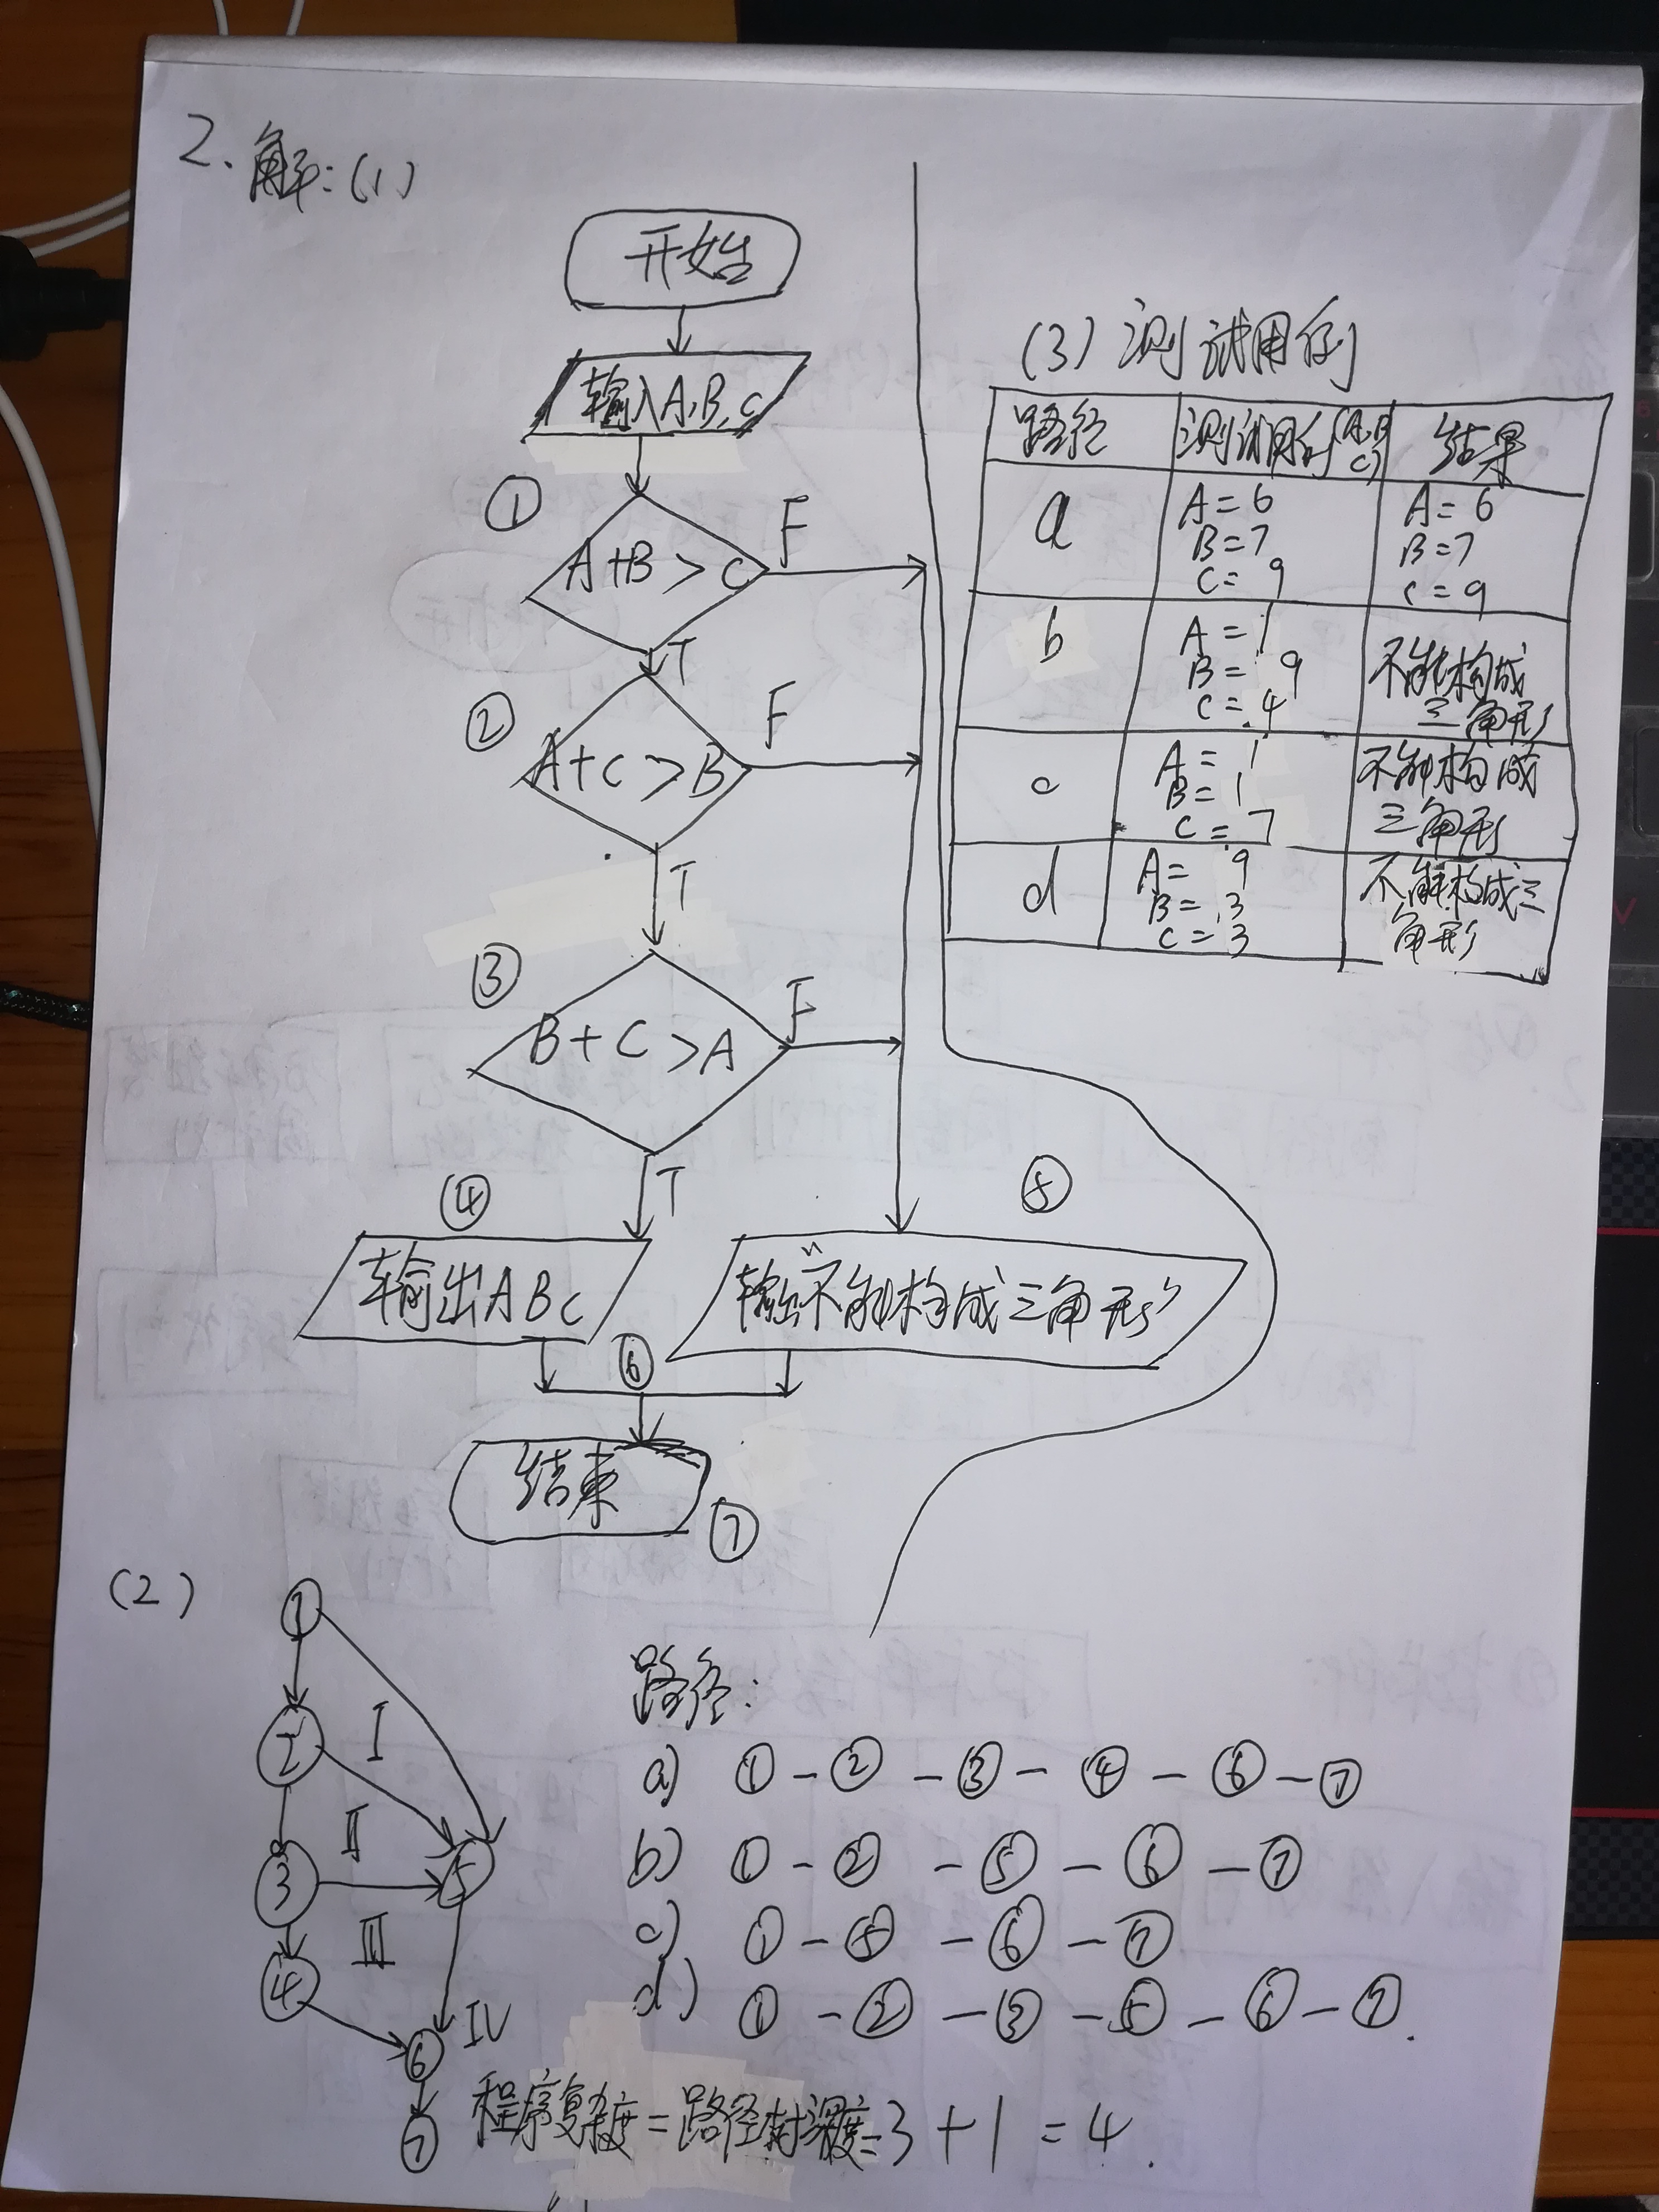 2. 解:(1)
开始
输入A,B,C
①
A+B>C
F
T
②
A+C>B
F
T
③
B+C>A
F
T
④
输出ABC
⑤
输出"不能构成三角形"
⑥
结束
⑦
(3) 测试用例
路径 测试用例(A,B,C) 结果
a
A=6
B=7
C=9
A=6
B=7
C=9
b
A=1
B=9
C=4
不能构成
三角形
c
A=1
B=1
C=7
不能构成
三角形
d
A=9
B=3
C=3
不能构成三
角形
(2)
①
②
③
④
⑤
⑥
⑦
I
II
III
IV
路径:
a) ①-②-③-④-⑥-⑦
b) ①-②-⑤-⑥-⑦
c) ①-⑤-⑥-⑦
d) ①-②-③-⑤-⑥-⑦.
程序复杂度=路径 深度=3+1=4.